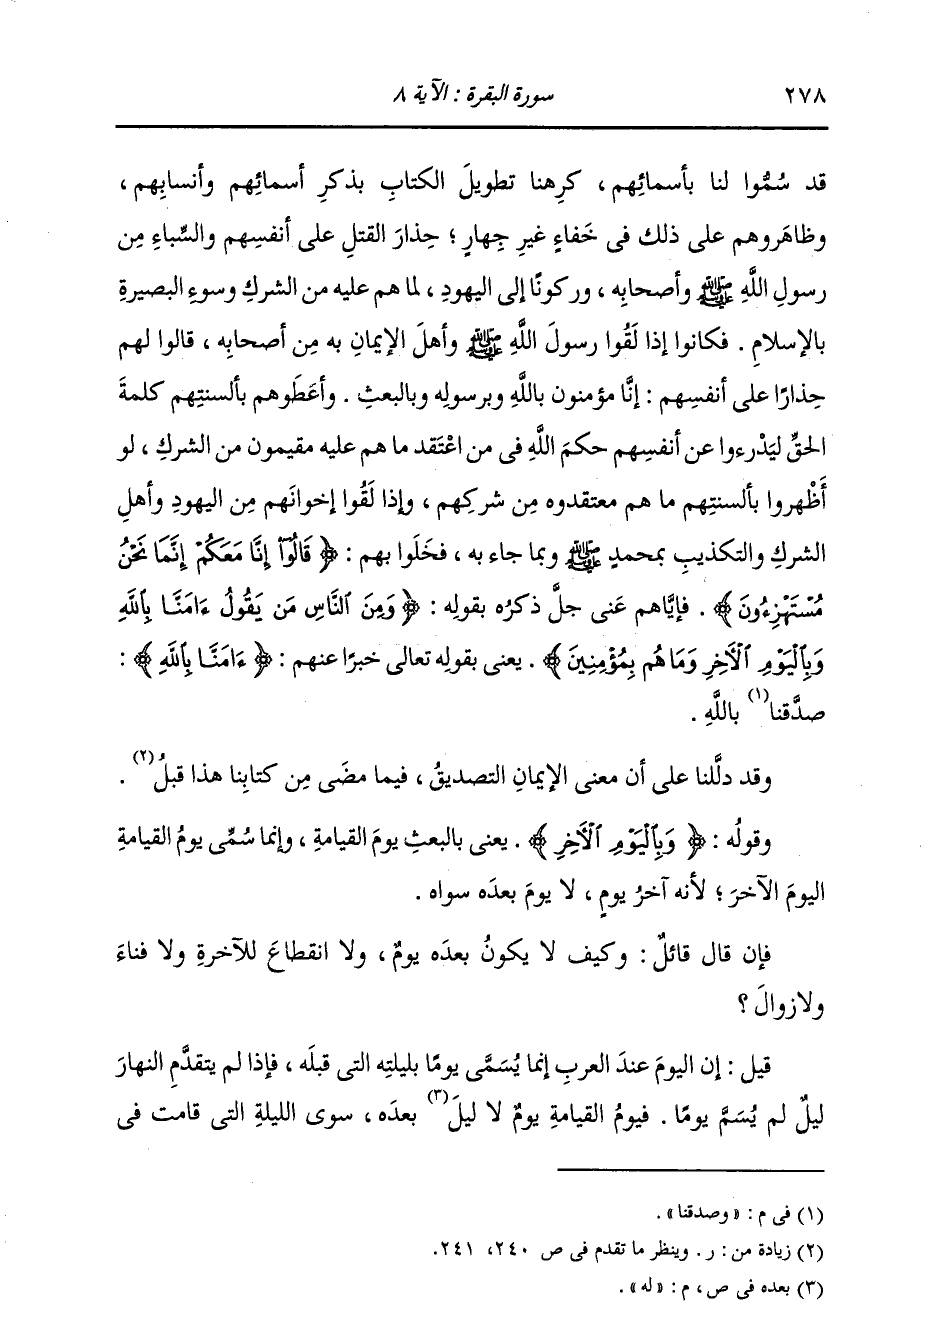 ٢٧٨ سورة البقرة : الآية ٨
قد سُمُّوا لنا بأسمائِهم ، كرِهنا تطويلَ الكتابِ بذكرِ أسمائِهم وأنسابِهم ،
وظاهَروهم على ذلك فى خَفاءٍ غيرِ جِهارٍ ؛ حِذارَ القتلِ على أنفسِهم والسِّباءِ مِن
رسولِ اللَّهِ ﷺ وأصحابِه ، وركونًا إلى اليهودِ ، لما هم عليه من الشركِ وسوءِ البصيرةِ
بالإسلامِ . فكانوا إذا لَقُوا رسولَ اللَّهِ ﷺ وأهلَ الإيمانِ به مِن أصحابِه ، قالوا لهم
حِذارًا على أنفسِهم : إنَّا مؤمنون باللَّهِ وبرسولِه وبالبعثِ . وأعَطَوهم بألسنتِهم كلمةَ
الحقِّ ليَدْرءوا عن أنفسِهم حكمَ اللَّهِ فى من اعْتَقد ما هم عليه مقيمون من الشركِ ، لو
أَظْهروا بألسنتِهم ما هم معتقدوه مِن شركِهم ، وإذا لَقُوا إخوانَهم مِن اليهودِ وأهلِ
الشركِ والتكذيبِ بمحمدٍ ﷺ وبما جاء به ، فخَلَوا بهم : ﴿ قَالُوٓا۟ إِنَّا مَعَكُمْ إِنَّمَا نَحْنُ
مُسْتَهْزِءُونَ ﴾ . فإيَّاهم عَنى جلَّ ذكرُه بقولِه : ﴿ وَمِنَ ٱلنَّاسِ مَن يَقُولُ ءَامَنَّا بِٱللَّهِ
وَبِٱلْيَوْمِ ٱلْأَخِرِ وَمَا هُم بِمُؤْمِنِينَ ﴾ . يعنى بقولِه تعالى خبرًا عنهم : ﴿ ءَامَنَّا بِٱللَّهِ ﴾ :
صدَّقنا(١) باللَّهِ .
وقد دلَّلنا على أن معنى الإيمانِ التصديقُ ، فيما مضَى مِن كتابِنا هذا قبلُ(٢) .
وقولُه : ﴿ وَبِٱلْيَوْمِ ٱلْأَخِرِ ﴾ . يعنى بالبعثِ يومَ القيامةِ ، وإنما سُمِّى يومُ القيامةِ
اليومَ الآخرَ ؛ لأنه آخرُ يومٍ ، لا يومَ بعدَه سواه .
فإن قال قائلٌ : وكيف لا يكونُ بعدَه يومٌ ، ولا انقطاعَ للآخرةِ ولا فناءَ
ولا زوالَ ؟
قيل : إن اليومَ عندَ العربِ إنما يُسَمَّى يومًا بليلتِه التى قبلَه ، فإذا لم يتقدَّمِ النهارَ
ليلٌ لم يُسَمَّ يومًا . فيومُ القيامةِ يومٌ لا ليلَ(٣) بعدَه ، سوى الليلةِ التى قامت فى
(١) فى م : « وصدقنا » .
(٢) زيادة من : ر . وينظر ما تقدم فى ص ٢٤٠، ٢٤١.
(٣) بعده فى ص ، م : « له » .